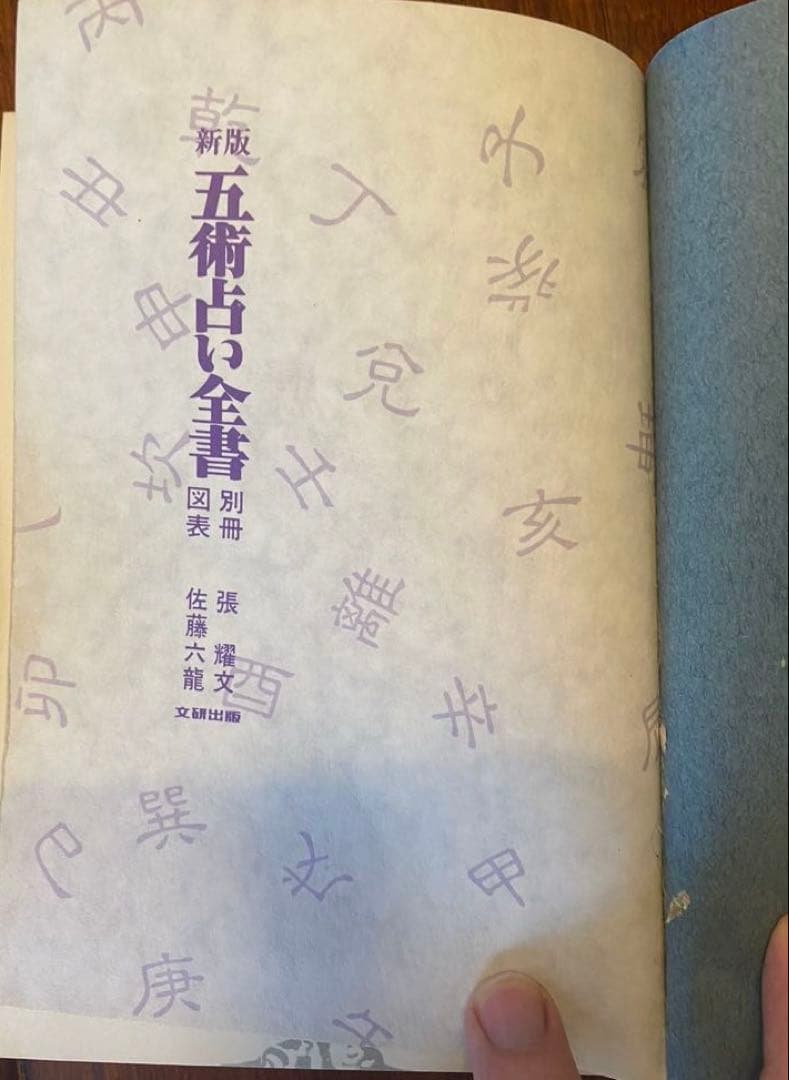 新版
五術占い全書
別冊
図表
張 耀文
佐藤六龍
文研出版
乾
子
人
申
兌
坎
壬
亥
離
卯
酉
辛
巽
甲
庚